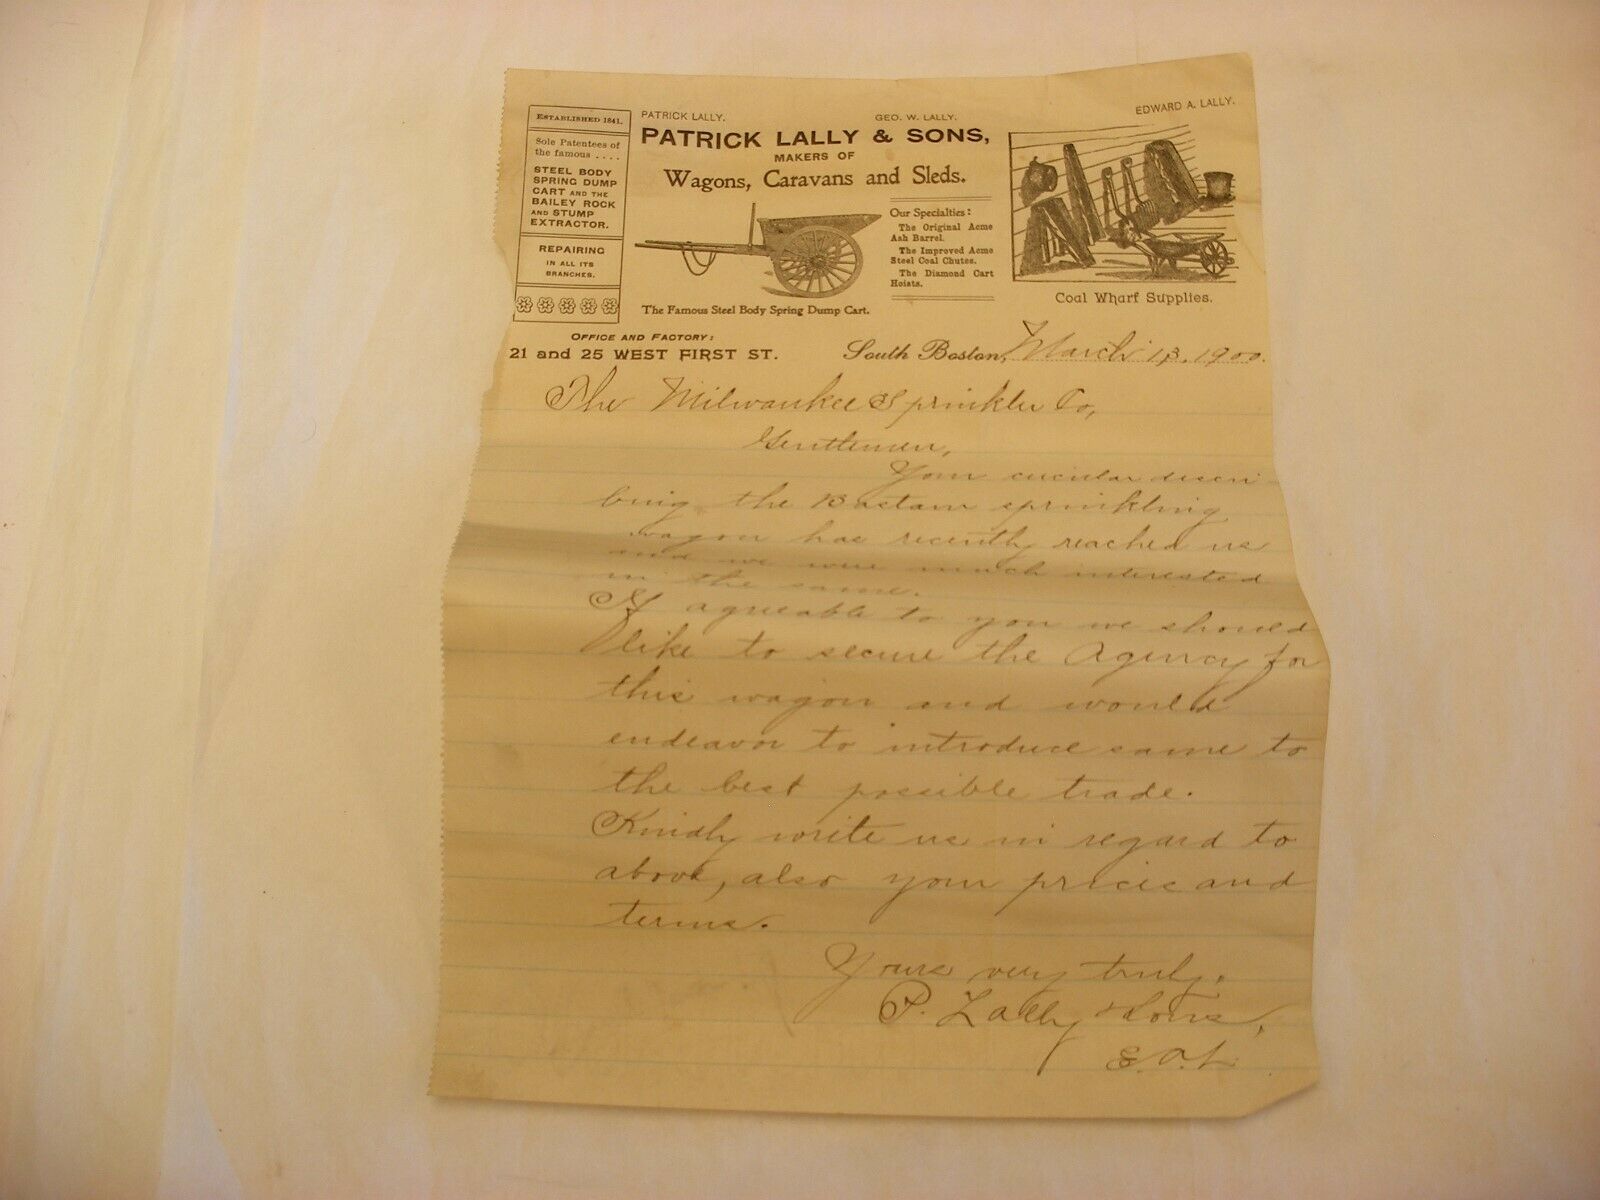 ESTABLISHED 1841.
Sole Patentees of
the famous ....
STEEL BODY
SPRING DUMP
CART AND THE
BAILEY ROCK
AND STUMP
EXTRACTOR.
REPAIRING
IN ALL ITS
BRANCHES.
PATRICK LALLY. GEO. W. LALLY. EDWARD A. LALLY.
PATRICK LALLY & SONS,
MAKERS OF
Wagons, Caravans and Sleds.
Our Specialties:
The Original Acme
Ash Barrel.
The Improved Acme
Steel Coal Chutes.
The Diamond Cart
Hoists.
The Famous Steel Body Spring Dump Cart.
Coal Wharf Supplies.
OFFICE AND FACTORY:
21 and 25 WEST FIRST ST. South Boston, March 13, 1900.
The Milwaukee Sprinkler Co,
Gentlemen,
Your circular descri-
bing the sprinkling
wagon has recently reached us
and we were much interested
in the same.
If agreeable to you we should
like to secure the Agency for
this wagon and would
endeavor to introduce same to
the best possible trade.
Kindly write us in regard to
above, also your prices and
terms.
Yours very truly,
P. Lally & Sons,
E.A.L.